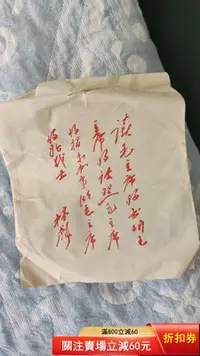 读毛主席的书听毛
主席的话照毛主席
的指示办事做毛主席
的好战士
林彪
滿800立減60
關注賣場立減60元
折扣券